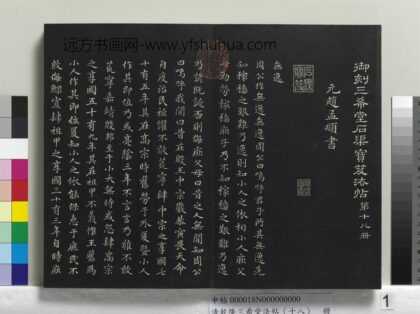 远方书画网-www.yfshuhua.com
御刻三希堂石渠寶笈法帖 第十八冊
元趙孟頫書
無逸
周公作無逸周公曰嗚呼君子所其無逸先
知稼穡之艱難乃逸則知小人之依相小人厥父
母勤勞稼穡厥子乃不知稼穡之艱難乃逸
乃諺既誕否則侮厥父母曰昔之人無聞知周公
曰嗚呼我聞曰昔在殷王中宗嚴恭寅畏天命
自度治民祗懼不敢荒寧肆中宗之享國七
十有五年其在高宗時舊勞于外爰暨小人
作其即位乃或亮陰三年不言言乃雍不敢
荒寧嘉靖殷邦至于小大無時或怨肆高宗
之享國五十有九年其在祖甲不義惟王舊為
小人作其即位爰知小人之依能保惠于庶民不
敢侮鰥寡肆祖甲之享國三十有三年自時厥
中帖 000018N000000000
清乾隆三希堂法帖(十八) 冊
1